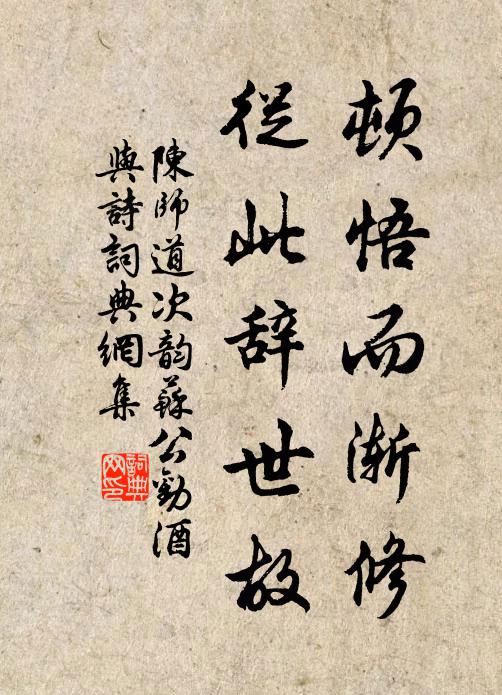 頓悟而漸修
從此辞世故
陳師道次韵蘇公勸酒
與詩詞典網集
詞典網印